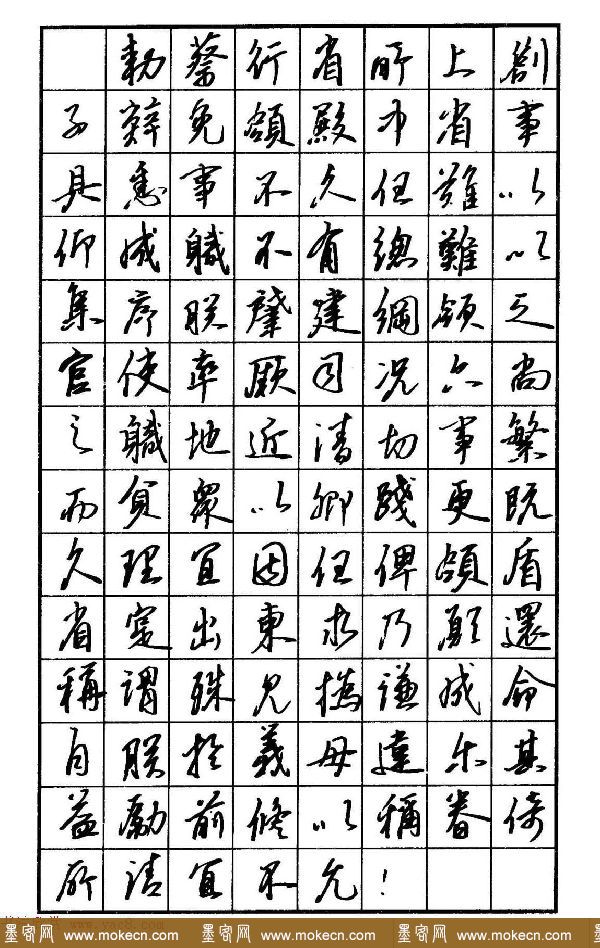 勅蔡行省所上劄
子辭免領殿中省事
具悉事不久任難以
仰成職不有總難以
集序朕肇建綱領之
官使率厥司況六尚
之職地近清切事繁
而員衆以卿踐更既
久理宜因任俾領盾
省寔出東求乃願還
稱謂殊見撝謙成命
自朕於義毋違尔其
益勵前修以稱眷倚
所請宜不允!
墨客网 www.mokecn.com 墨客网 www.mokecn.com 墨客网 www.mokecn.com